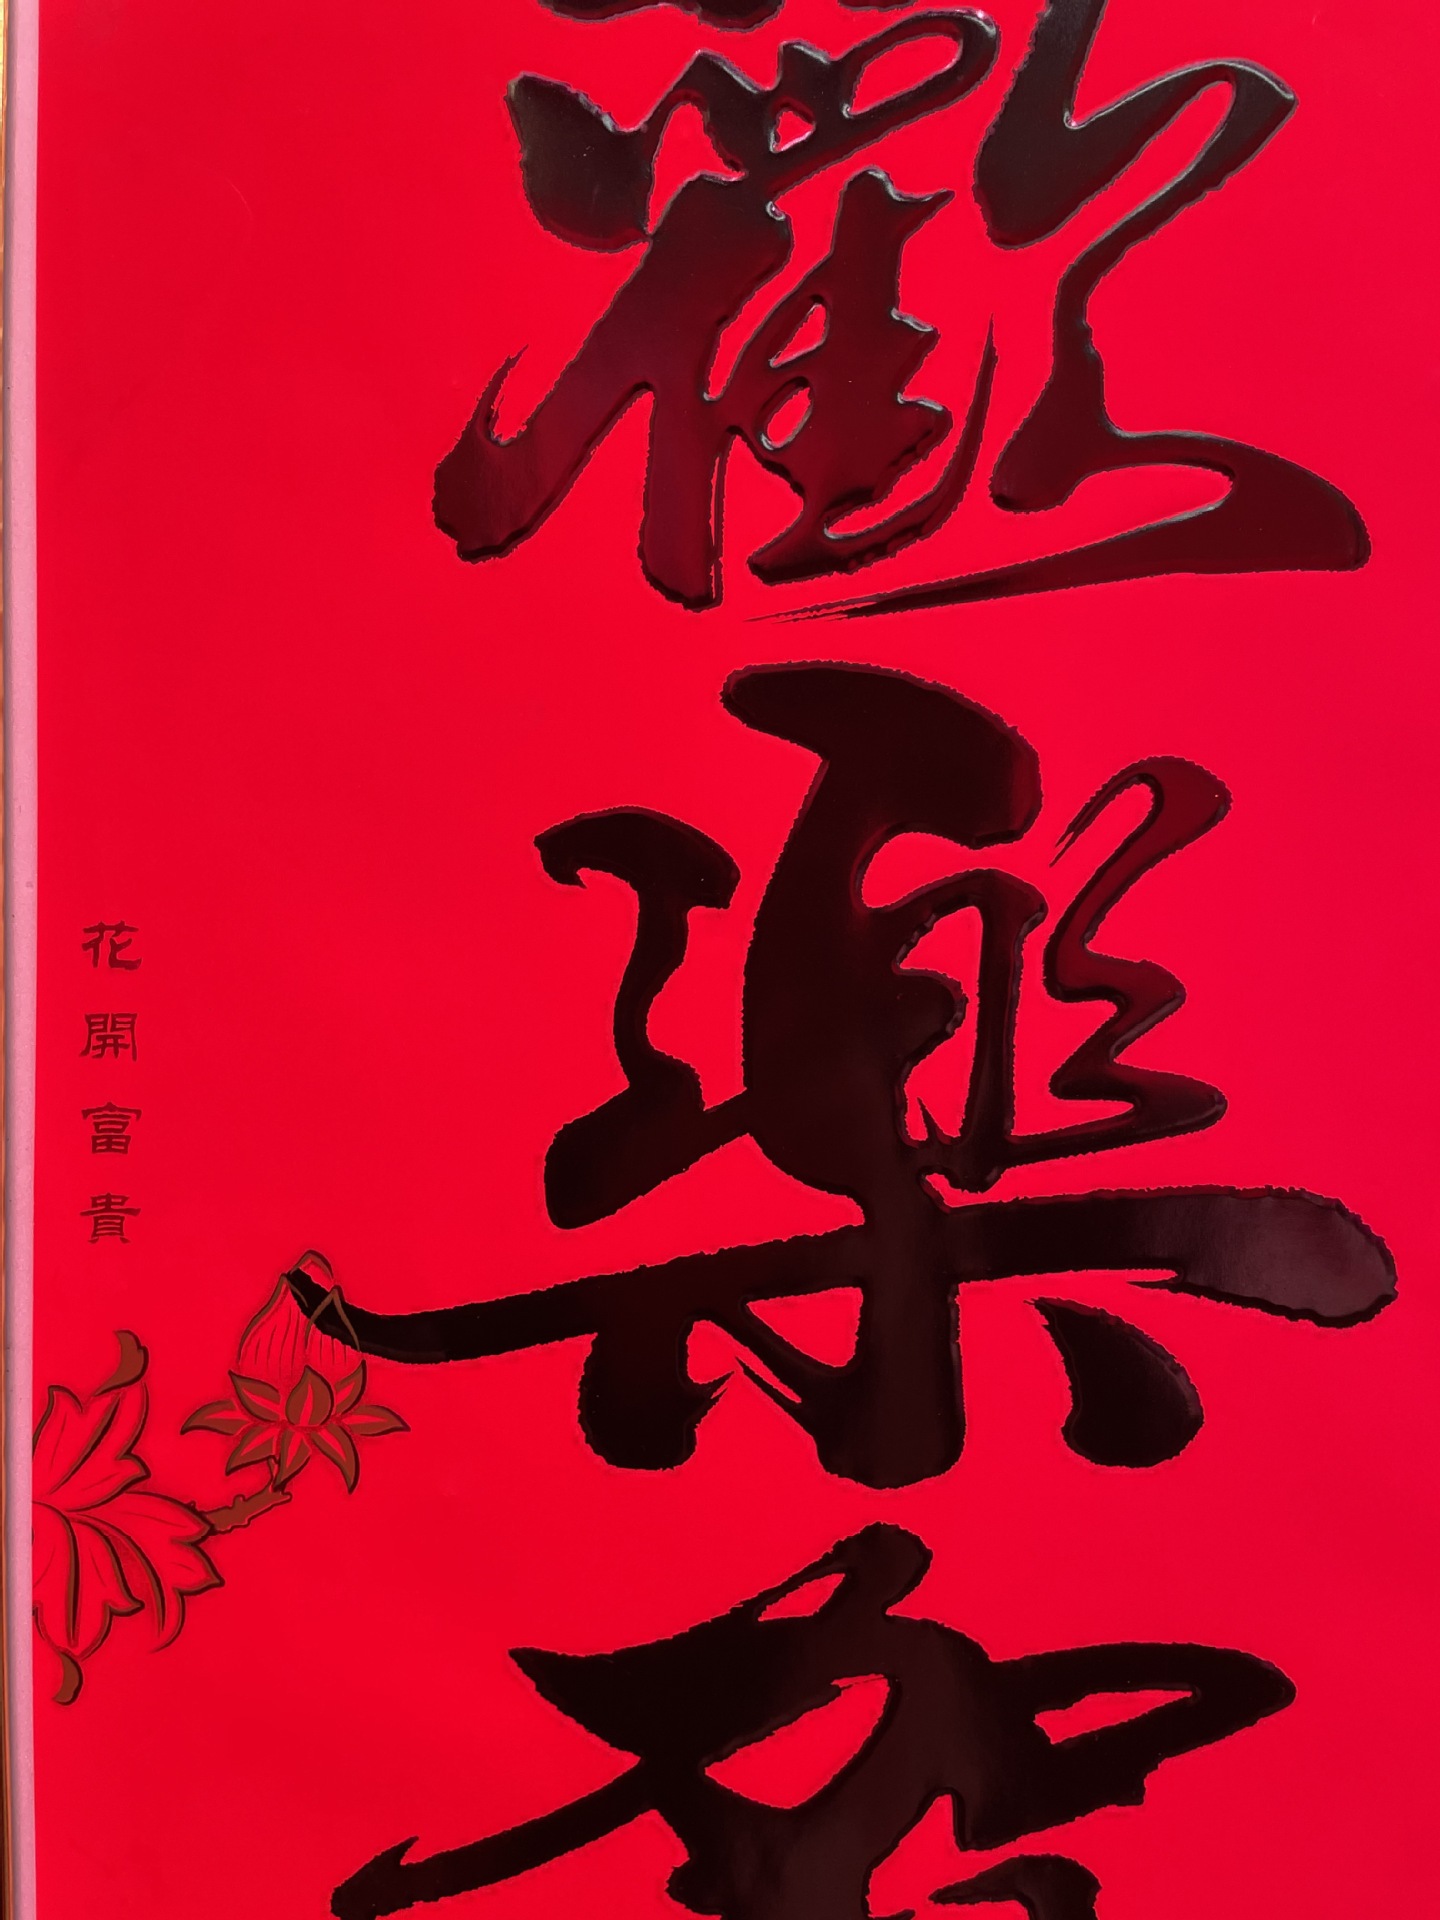 歡樂賀
花開富貴